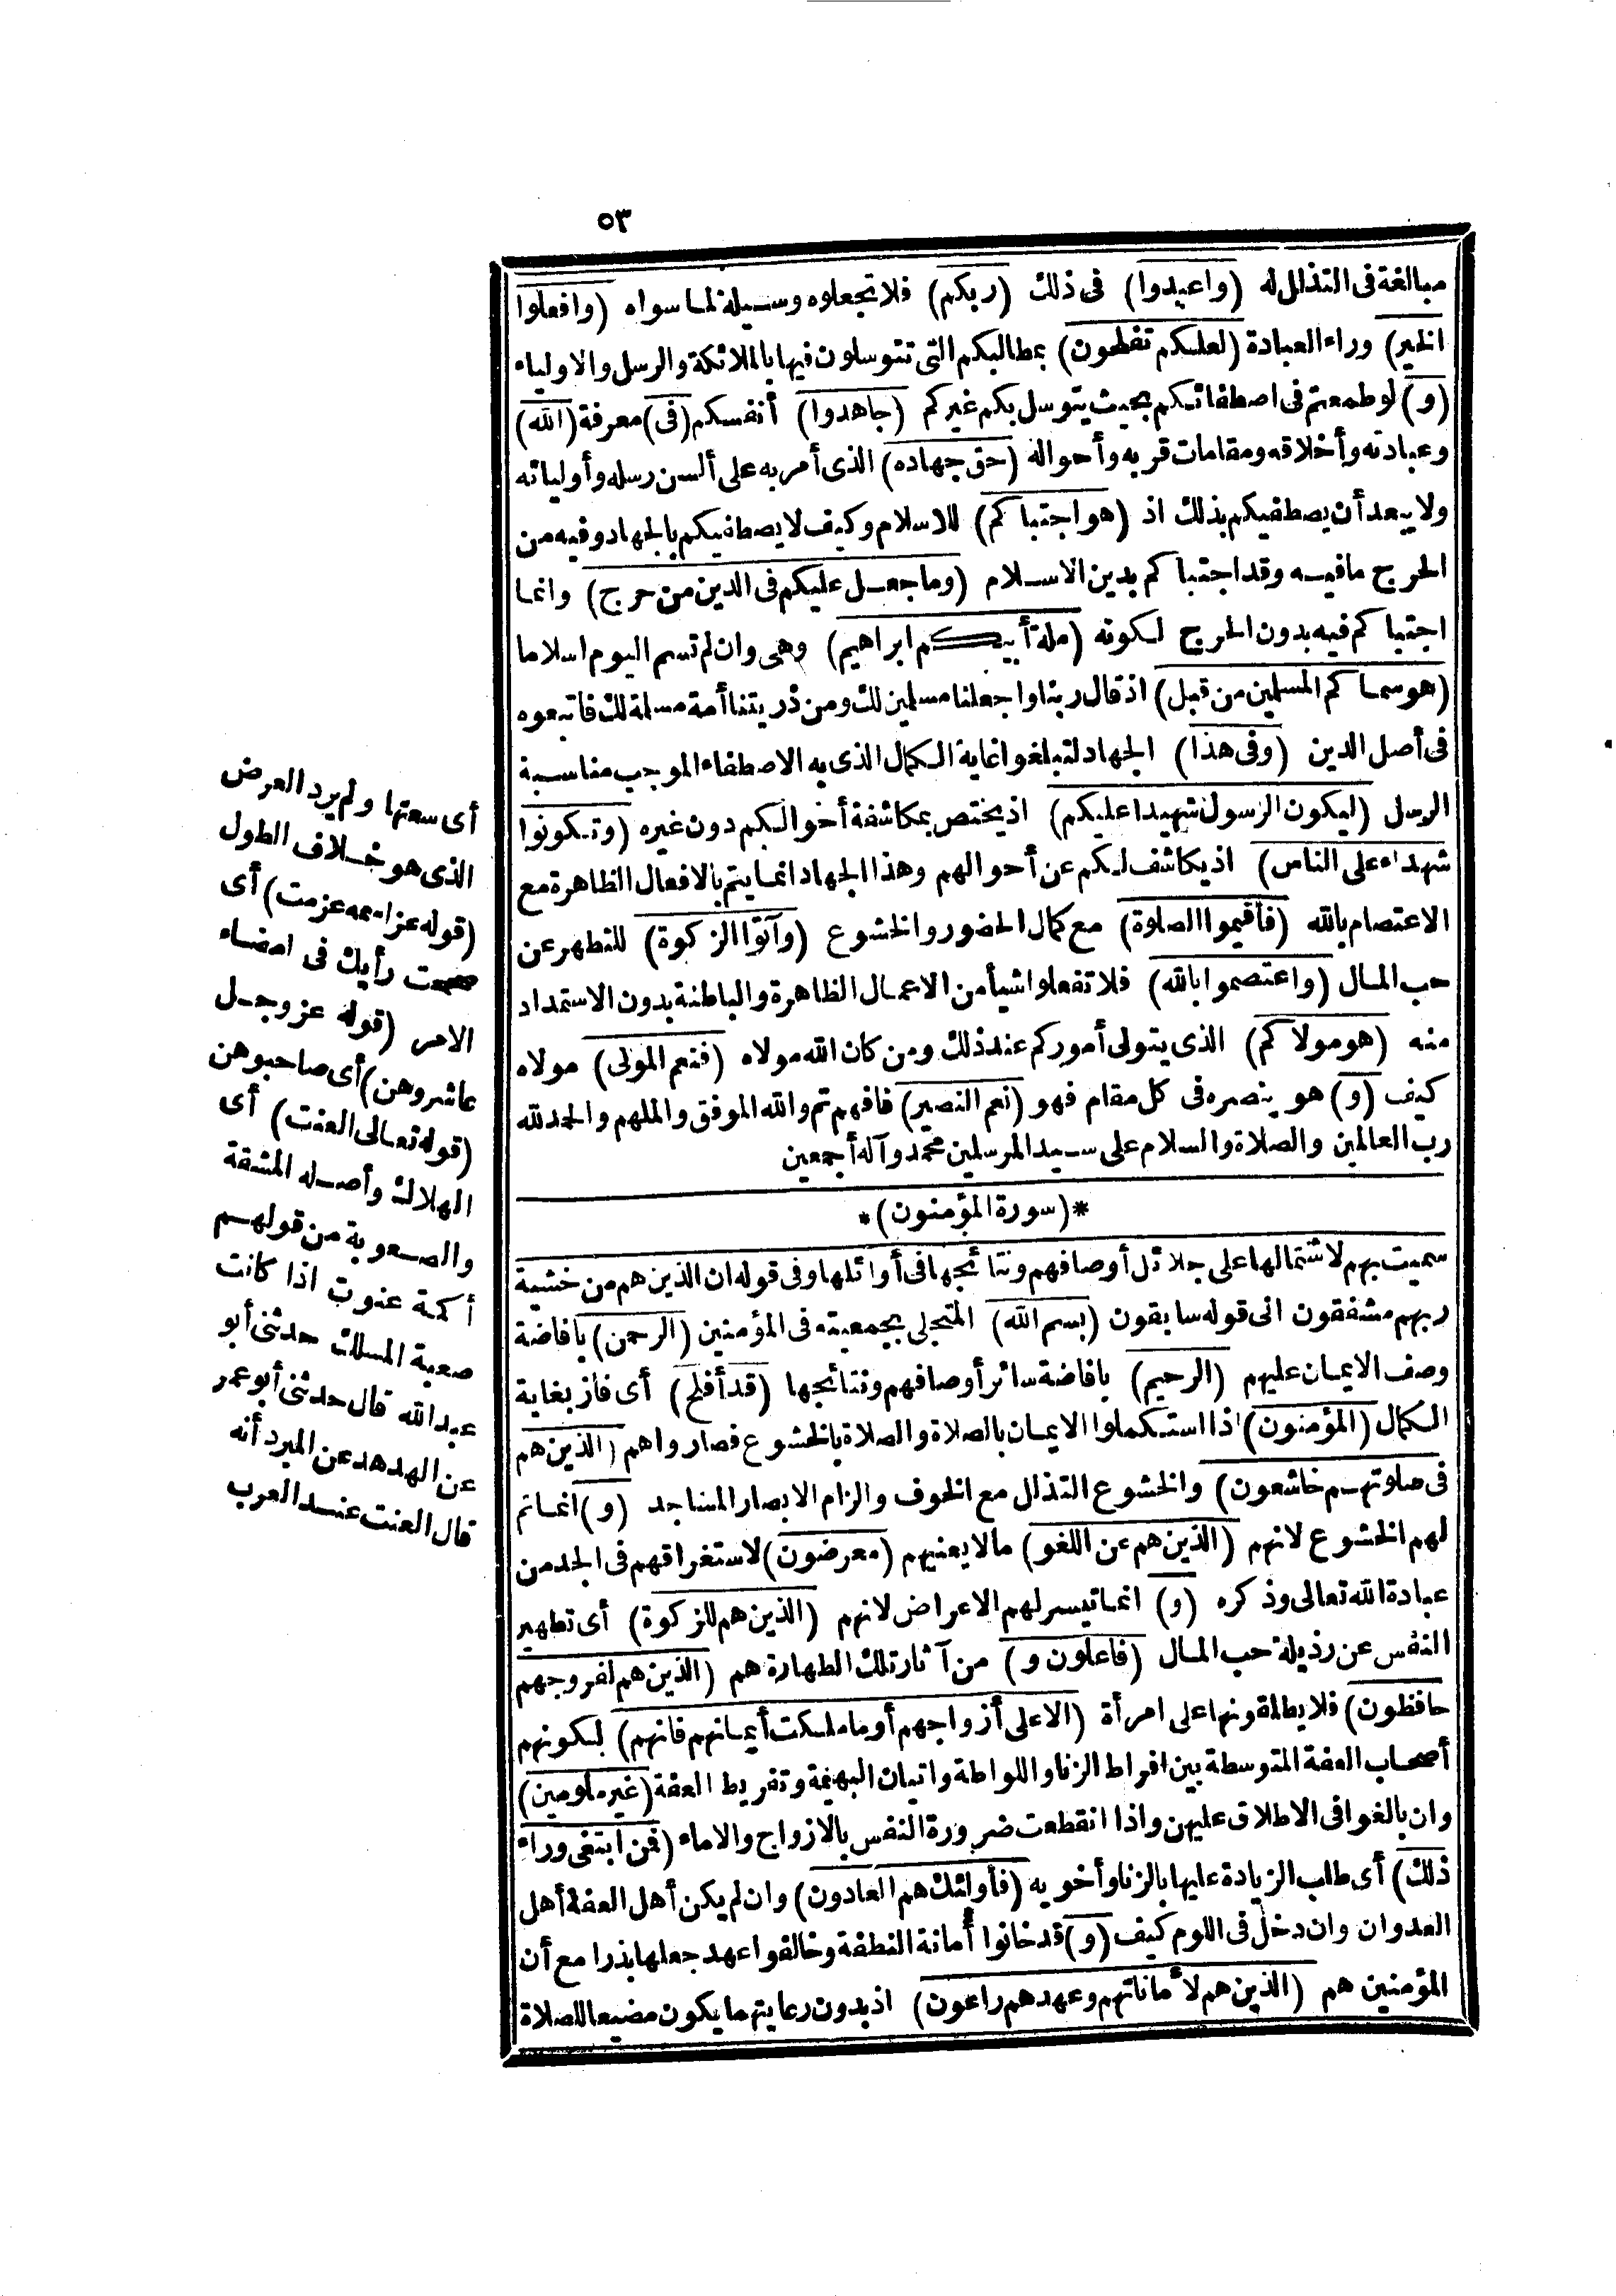 ٥٣
مبالغة فى التذلل له (واعبدوا) فى ذلك (ربكم) فلا تجعلوه وسيلة لما سواه (وافعلوا
الخير) وراء العبادة (لعلكم تفلحون) بمطالبكم التى تتوسلون فيها بالملائكة والرسل والاولياء
(و) لو طمعتم فى اصطفائكم بحيث يتوسل بكم غيركم (جاهدوا) أنفسكم (فى) معرفة (الله)
وعبادته وأخلاقه ومقامات قربه وأحواله (حق جهاده) الذى أمر به على ألسن رسله وأوليائه
ولا يبعد أن يصطفيكم بذلك اذ (هو اجتباكم) للاسلام وكيف لا يصطفيكم بالجهاد وفيه من
الحرج ما فيه وقد اجتباكم بدين الاسلام (وما جعل عليكم فى الدين من حرج) وانما
اجتباكم فيه بدون الحرج لكونه (ملة أبيكم ابراهيم) وهى وان لم تسم اليوم اسلاما
(هو سماكم المسلمين من قبل) اذ قال ربنا واجعلنا مسلمين لك ومن ذريتنا أمة مسلمة لك فاتبعوه
فى أصل الدين (وفى هذا) الجهاد لتبلغوا غاية الكمال الذى به الاصطفاء الموجب مناسبة
الرسل (ليكون الرسول شهيدا عليكم) اذ يختص بمكاشفة أحوالكم دون غيره (وتكونوا
شهداء على الناس) اذ يكاشف لكم عن أحوالهم وهذا الجهاد انما يتم بالافعال الظاهرة مع
الاعتصام بالله (فأقيموا الصلوة) مع كمال الحضور والخشوع (وآتوا الزكوة) للتطهر عن
حب المال (واعتصموا بالله) فلا تفعلوا شيأ من الاعمال الظاهرة والباطنة بدون الاستمداد
منه (هو مولاكم) الذى يتولى أموركم عند ذلك ومن كان الله مولاه (فنعم المولى) مولاه
كيف (و) هو ينصره فى كل مقام فهو (نعم النصير) فافهم تم والله الموفق والملهم والحمد لله
رب العالمين والصلاة والسلام على سيد المرسلين محمد وآله أجمعين
*(سورة المؤمنون)*
سميت بهم لاشتمالها على جلائل أوصافهم ونتائجها فى أوائلها وفى قوله ان الذين هم من خشية
ربهم مشفقون الى قوله سابقون (بسم الله) المتجلى بجمعيته فى المؤمنين (الرحمن) بافاضة
وصف الايمان عليهم (الرحيم) بافاضة سائر أوصافهم ونتائجها (قد أفلح) أى فاز بغاية
الكمال (المؤمنون) اذا استكملوا الايمان بالصلاة والصلاة بالخشوع فصار واهم (الذين هم
فى صلوتهم خاشعون) والخشوع التذلل مع الخوف والزام الابصار المساجد (و) انما تم
لهم الخشوع لانهم (الذين هم عن اللغو) ما لا يعنيهم (معرضون) لاستغراقهم فى الجد من
عبادة الله تعالى وذكره (و) انما تيسر لهم الاعراض لانهم (الذين هم للزكوة) أى تطهير
النفس عن رذيلة حب المال (فاعلون و) من آثار تلك الطهارة هم (الذين هم لفروجهم
حافظون) فلا يطلقونها على امرأة (الا على أزواجهم أو ما ملكت أيمانهم فانهم) لكونهم
أصحاب العفة المتوسطة بين افراط الزنا واللواطة واتيان البهيمة وتفريط العفة (غير ملومين)
وان بالغوا فى الاطلاق عليهن واذا انقطعت ضرورة النفس بالازواج والاماء (فمن ابتغى وراء
ذلك) أى طلب الزيادة عليها بالزنا وأخويه (فأولئك هم العادون) وان لم يكن أهل العفة أهل
العدوان وان دخل فى اللوم كيف (و) قد خانوا أمانة النطفة وخالفوا عهد جعلها بذرا مع أن
المؤمنين هم (الذين هم لأماناتهم وعهدهم راعون) اذ بدون رعايتهما يكون مضيعا للصلاة
أى سعتها ولم يرد العرض
الذى هو خلاف الطول
(قوله عزاسمه عزمت) أى
صححت رأيك فى امضاء
الامر (قوله عز وجل
عاشروهن) أى صاحبوهن
(قوله تعالى العنت) أى
الهلاك وأصله المشقة
والصعوبة من قولهم
أكمة عنوت اذا كانت
صعبة المسلك حدثنى أبو
عبد الله قال حدثنى أبو عمر
عن الهدهد عن المبرد أنه
قال العنت عند العرب